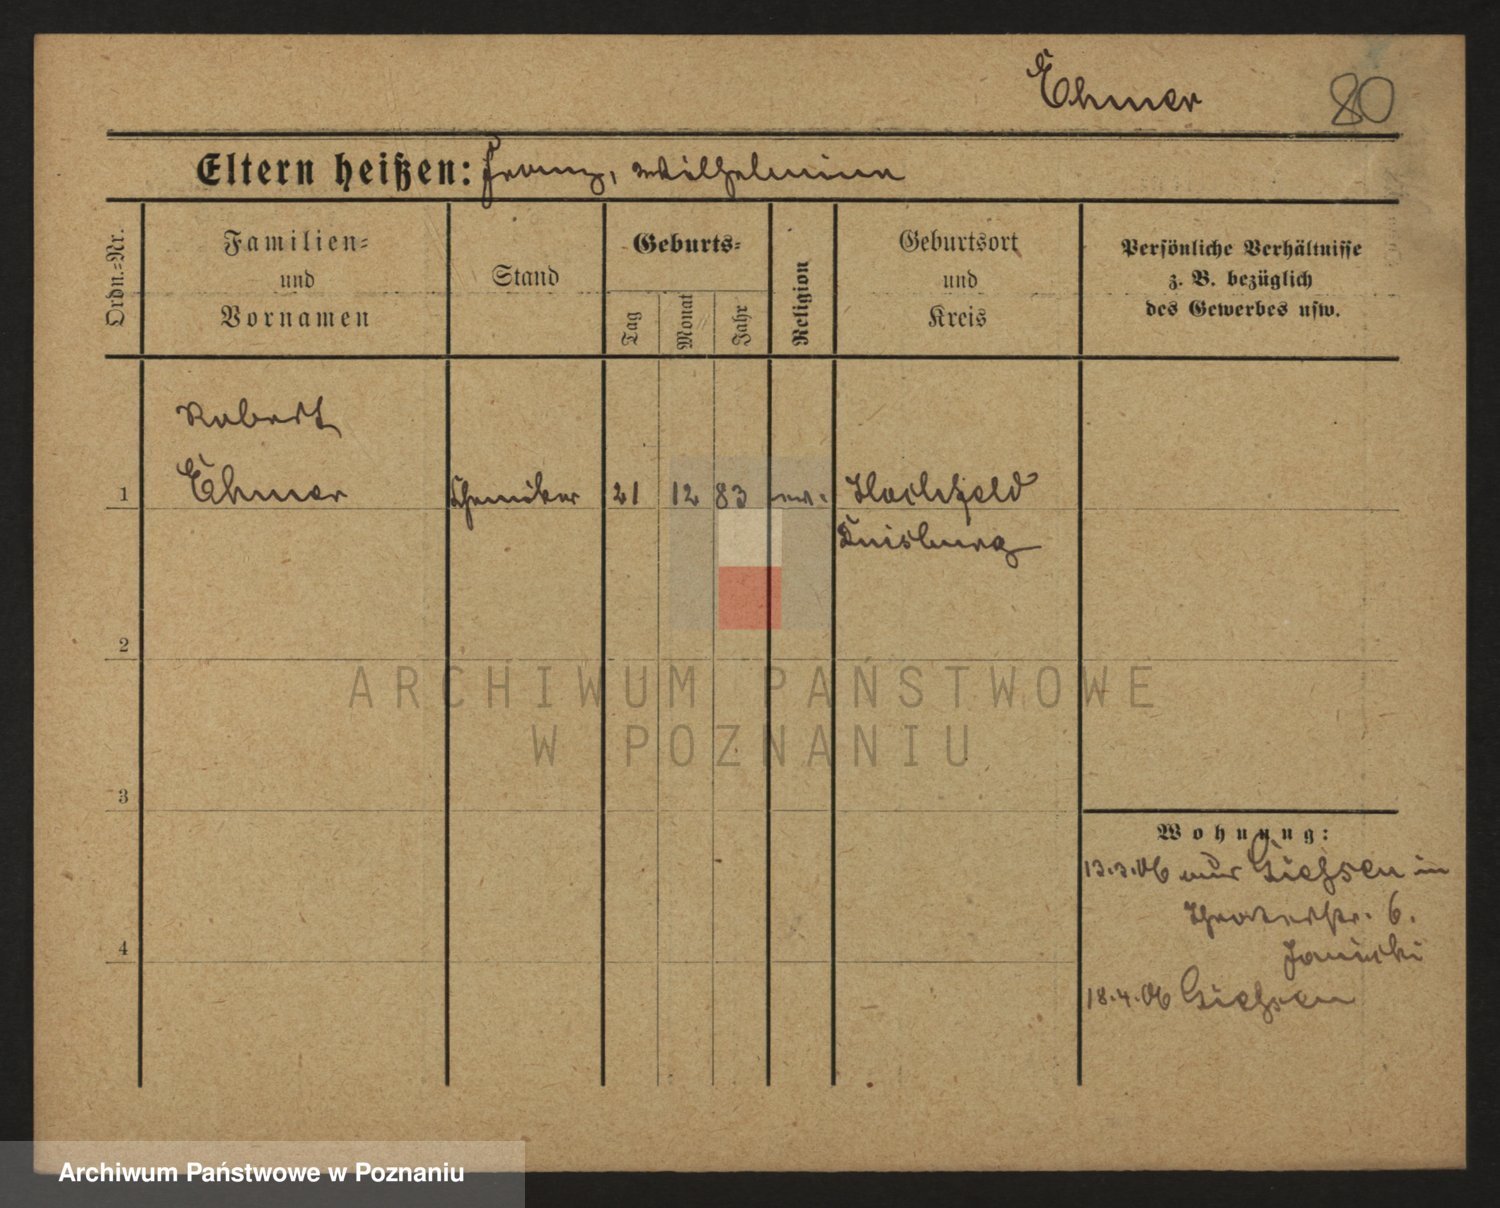 Ehmer 80
Eltern heißen: Franz, Wilhelmine
Ordn.-Nr.
Familien-
und
Vornamen
Stand
Geburts-
Tag
Monat
Jahr
Religion
Geburtsort
und
Kreis
Persönliche Verhältnisse
z. B. bezüglich
des Gewerbes usw.
Robert
1 Ehmer Chemiker 21 12 83 ev. Hochfeld
Duisburg
2
ARCHIWUM PAŃSTWOWE
W POZNANIU
3
Wohnung:
13.3.06 aus Gießen in
Theaterstr. 6.
4
Janicki
18.4.06 Gießen
Archiwum Państwowe w Poznaniu